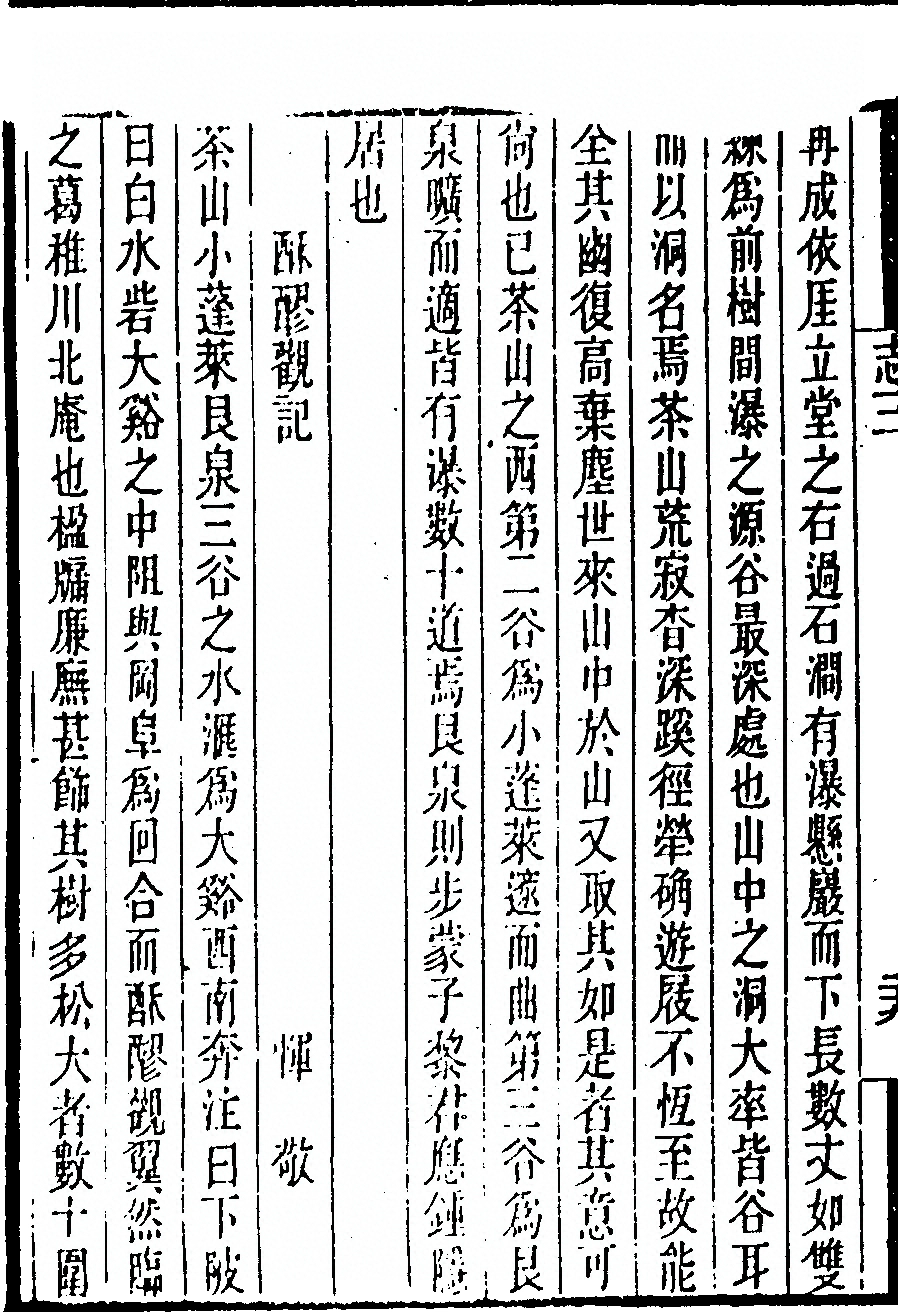 再成依厓立堂之右過石澗有瀑懸巖而下長數丈如雙
為前樹間瀑之源谷最深處也山中之洞大率皆谷耳
以洞名焉茶山荒寂杳深蹊徑犖确遊屐不恆至故能
全其幽復高棄塵世來山中於山又取其如是者其意可
尚也已茶山之西第二谷爲小蓬萊邃而曲第三谷爲艮
泉曠而適皆有瀑數十道焉艮泉則步蒙子黎君應鍾隱
居也
酥醪觀記 惲敬
茶山小蓬萊艮泉三谷之水滙爲大谿西南奔注曰下陂
曰白水砦大谿之中阻與岡阜爲回合而酥醪觀翼然臨
之葛稚川北庵也楹牖廉廡甚飾其樹多松大者數十圍
志三